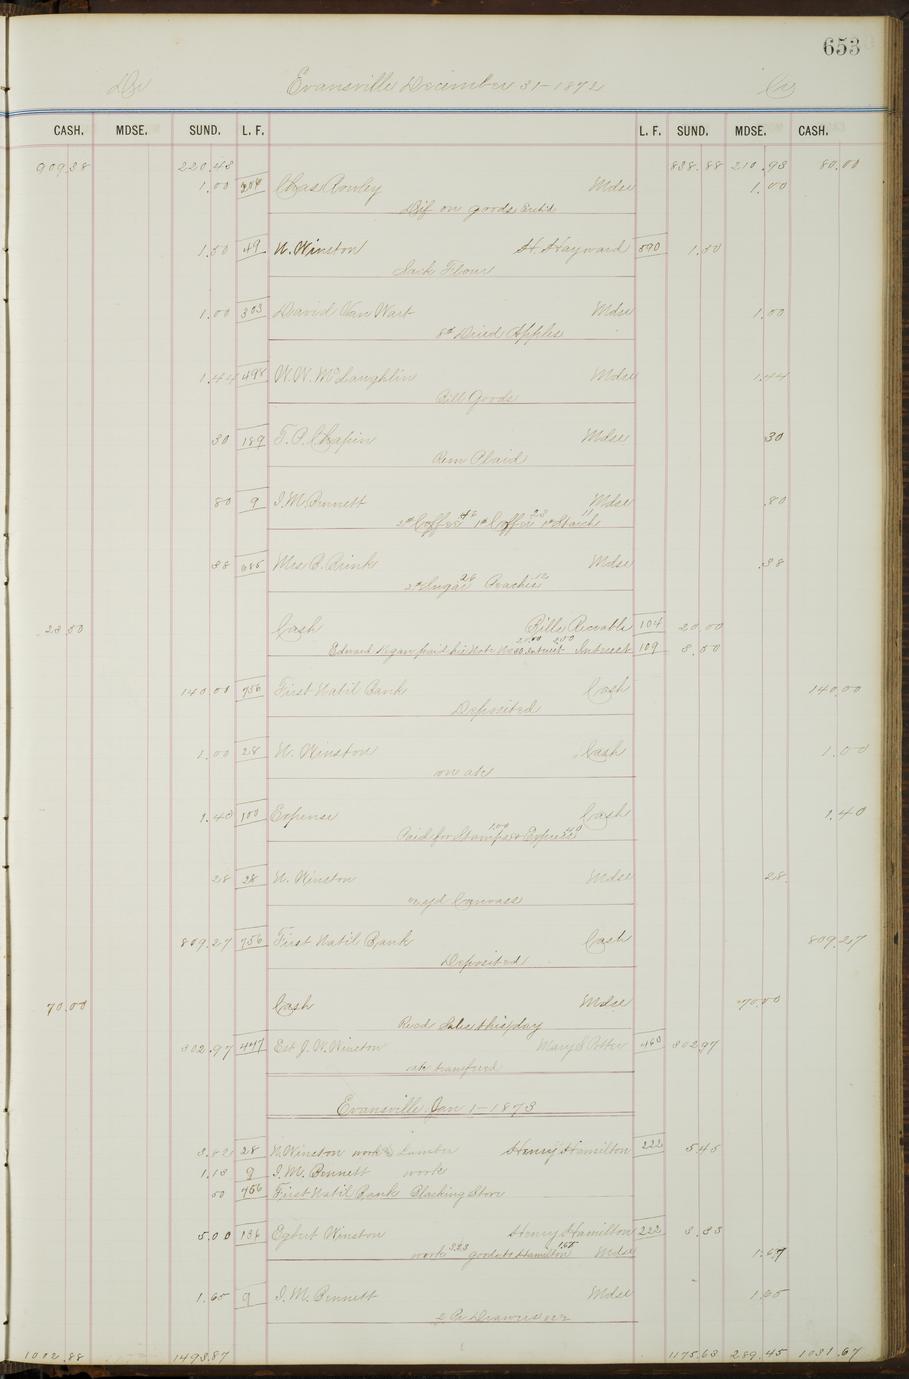 653
Dr Evansville December 31-1872 Cr
CASH. MDSE. SUND. L. F. L. F. SUND. MDSE. CASH.
909.38 220.43 838.88 210.93 80.00
1.00 304 Chas Rowley Mdse 1.00
Dif on goods Exch'd
1.50 49 N. Winston H. Hayward 590 1.50
Sack Flour
1.00 303 David Van Wart Mdse 1.00
8# Dried Apples
1.44 498 W. W. McLaughlin Mdse 1.44
Bill Goods
30 189 T. P. Chapin Mdse 30
Rem Plaid
80 9 I. M. Bennett Mdse .80
2# Coffee 46 1# Coffee 23 1# Starch 11
38 685 Mrs B. Brink Mdse .38
2# Sugar 26 Peaches 12
23.50 Cash Bills Receivable 104 20.00
Edward Ryan paid his Note 20.00 Interest Interest 109 3.50
140.00 756 First Nat'l Bank Cash 140.00
Deposited
1.00 28 N. Winston Cash 1.00
on a/c
1.40 100 Expense Cash 1.40
Paid for Stamps 1.00 Express 40
28 28 N. Winston Mdse 28
yd Canvass
809.27 756 First Nat'l Bank Cash 809.27
Deposited
70.00 Cash Mdse 70.00
Recd Sales this day
302.97 447 Est J. W. Winston Mary S Potter 460 302.97
a/c transfered
Evansville Jan 1-1873
3.82 28 N. Winston work & Lumber Henry Hamilton 222 5.45
1.13 9 I. M. Bennett work
50 756 First Nat'l Bank Blacking Stove
5.00 136 Egbert Winston Henry Hamilton 222 3.33
work 3.33 goods to Hamilton 1.67 Mdse 1.67
1.65 9 I. M. Bennett Mdse 1.65
2 Pr Drawers
1002.88 1493.87 1175.63 289.45 1031.67